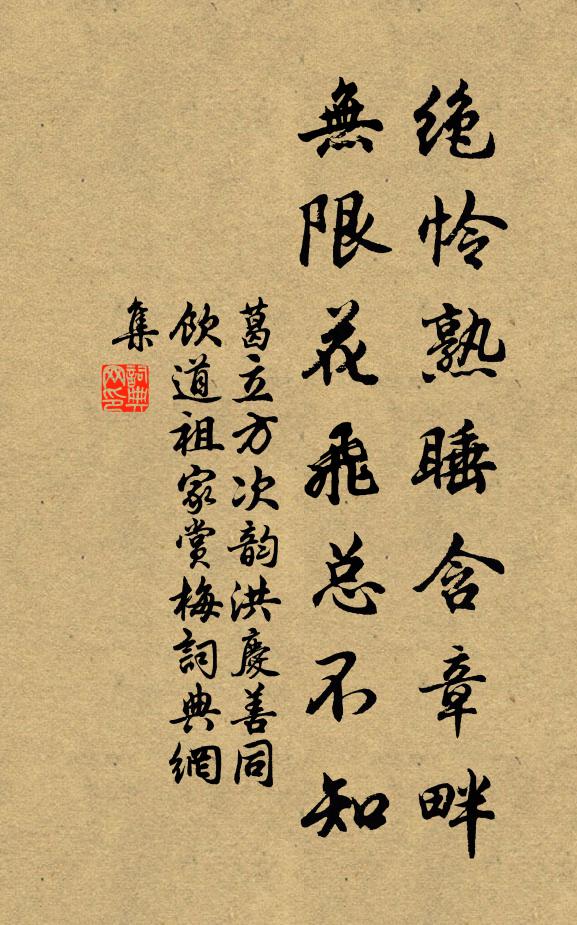 绝怜熟睡含章畔
無限花飛总不知
葛立方次韵洪慶善同
飲道祖家赏梅詞典網
集
詞典
网印